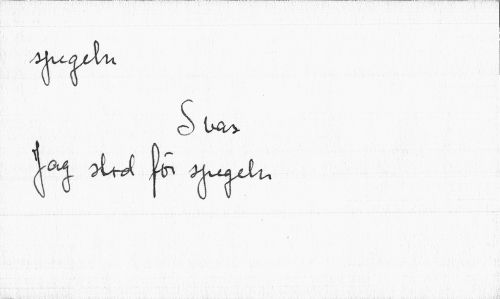 spegeln
Svar
Jag stod för spegeln